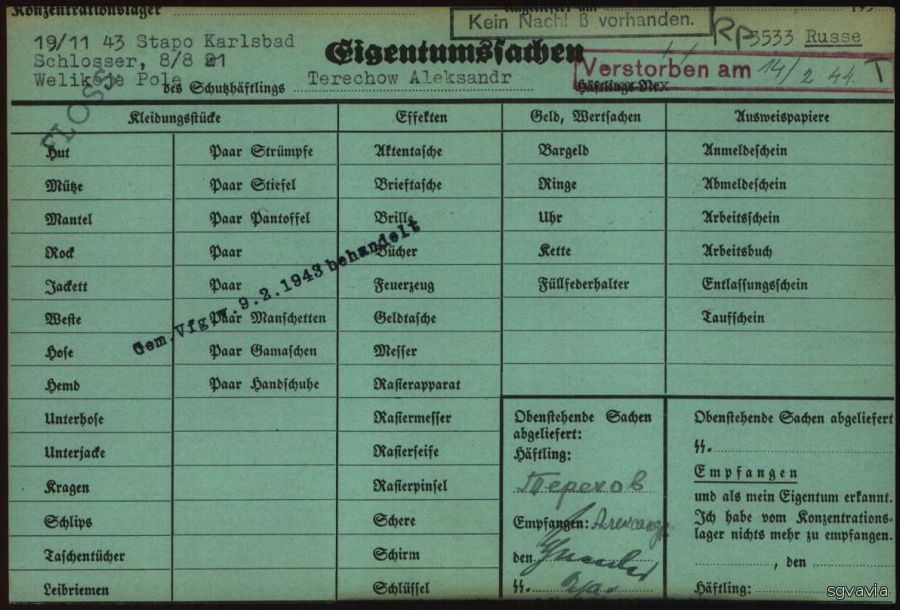 Konzentrationslager
eingeliefert am 193
Kein Nachlaß vorhanden.
Rp 3533 Russe
19/11 43 Stapo Karlsbad
Schlosser, 8/8 21
Welikoje Pole
FLOSS
Eigentumssachen
des Schutzhäftlings Terechow Aleksandr Häftlings-Nr.
Verstorben am 14/2 44. T
Kleidungsstücke Effekten Geld, Wertsachen Ausweispapiere
Hut Paar Strümpfe Aktentasche Bargeld Anmeldeschein
Mütze Paar Stiefel Brieftasche Ringe Abmeldeschein
Mantel Paar Pantoffel Brille Uhr Arbeitsschein
Rock Paar Bücher Kette Arbeitsbuch
Jackett Paar Feuerzeug Füllfederhalter Entlassungsschein
Weste Paar Manschetten Geldtasche Taufschein
Hose Paar Gamaschen Messer
Hemd Paar Handschuhe Rasierapparat
Gem.Vfg.v. 9.2.1943 behandelt
Unterhose Rasiermesser
Unterjacke Rasierseife
Kragen Rasierpinsel
Schlips Schere
Taschentücher Schirm
Leibriemen Schlüssel
Obenstehende Sachen
abgeliefert:
Häftling:
Терехов
Empfangen: Александр
den
SS.
Obenstehende Sachen abgeliefert
SS.
Empfangen
und als mein Eigentum erkannt.
Ich habe vom Konzentrations-
lager nichts mehr zu empfangen.
, den
Häftling:
sgvavia